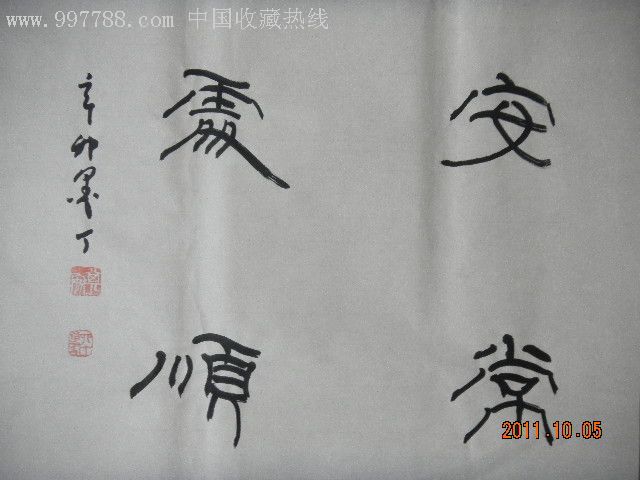 www.997788.com 中国收藏热线
安常
處順
辛卯墨丁
2011.10.05